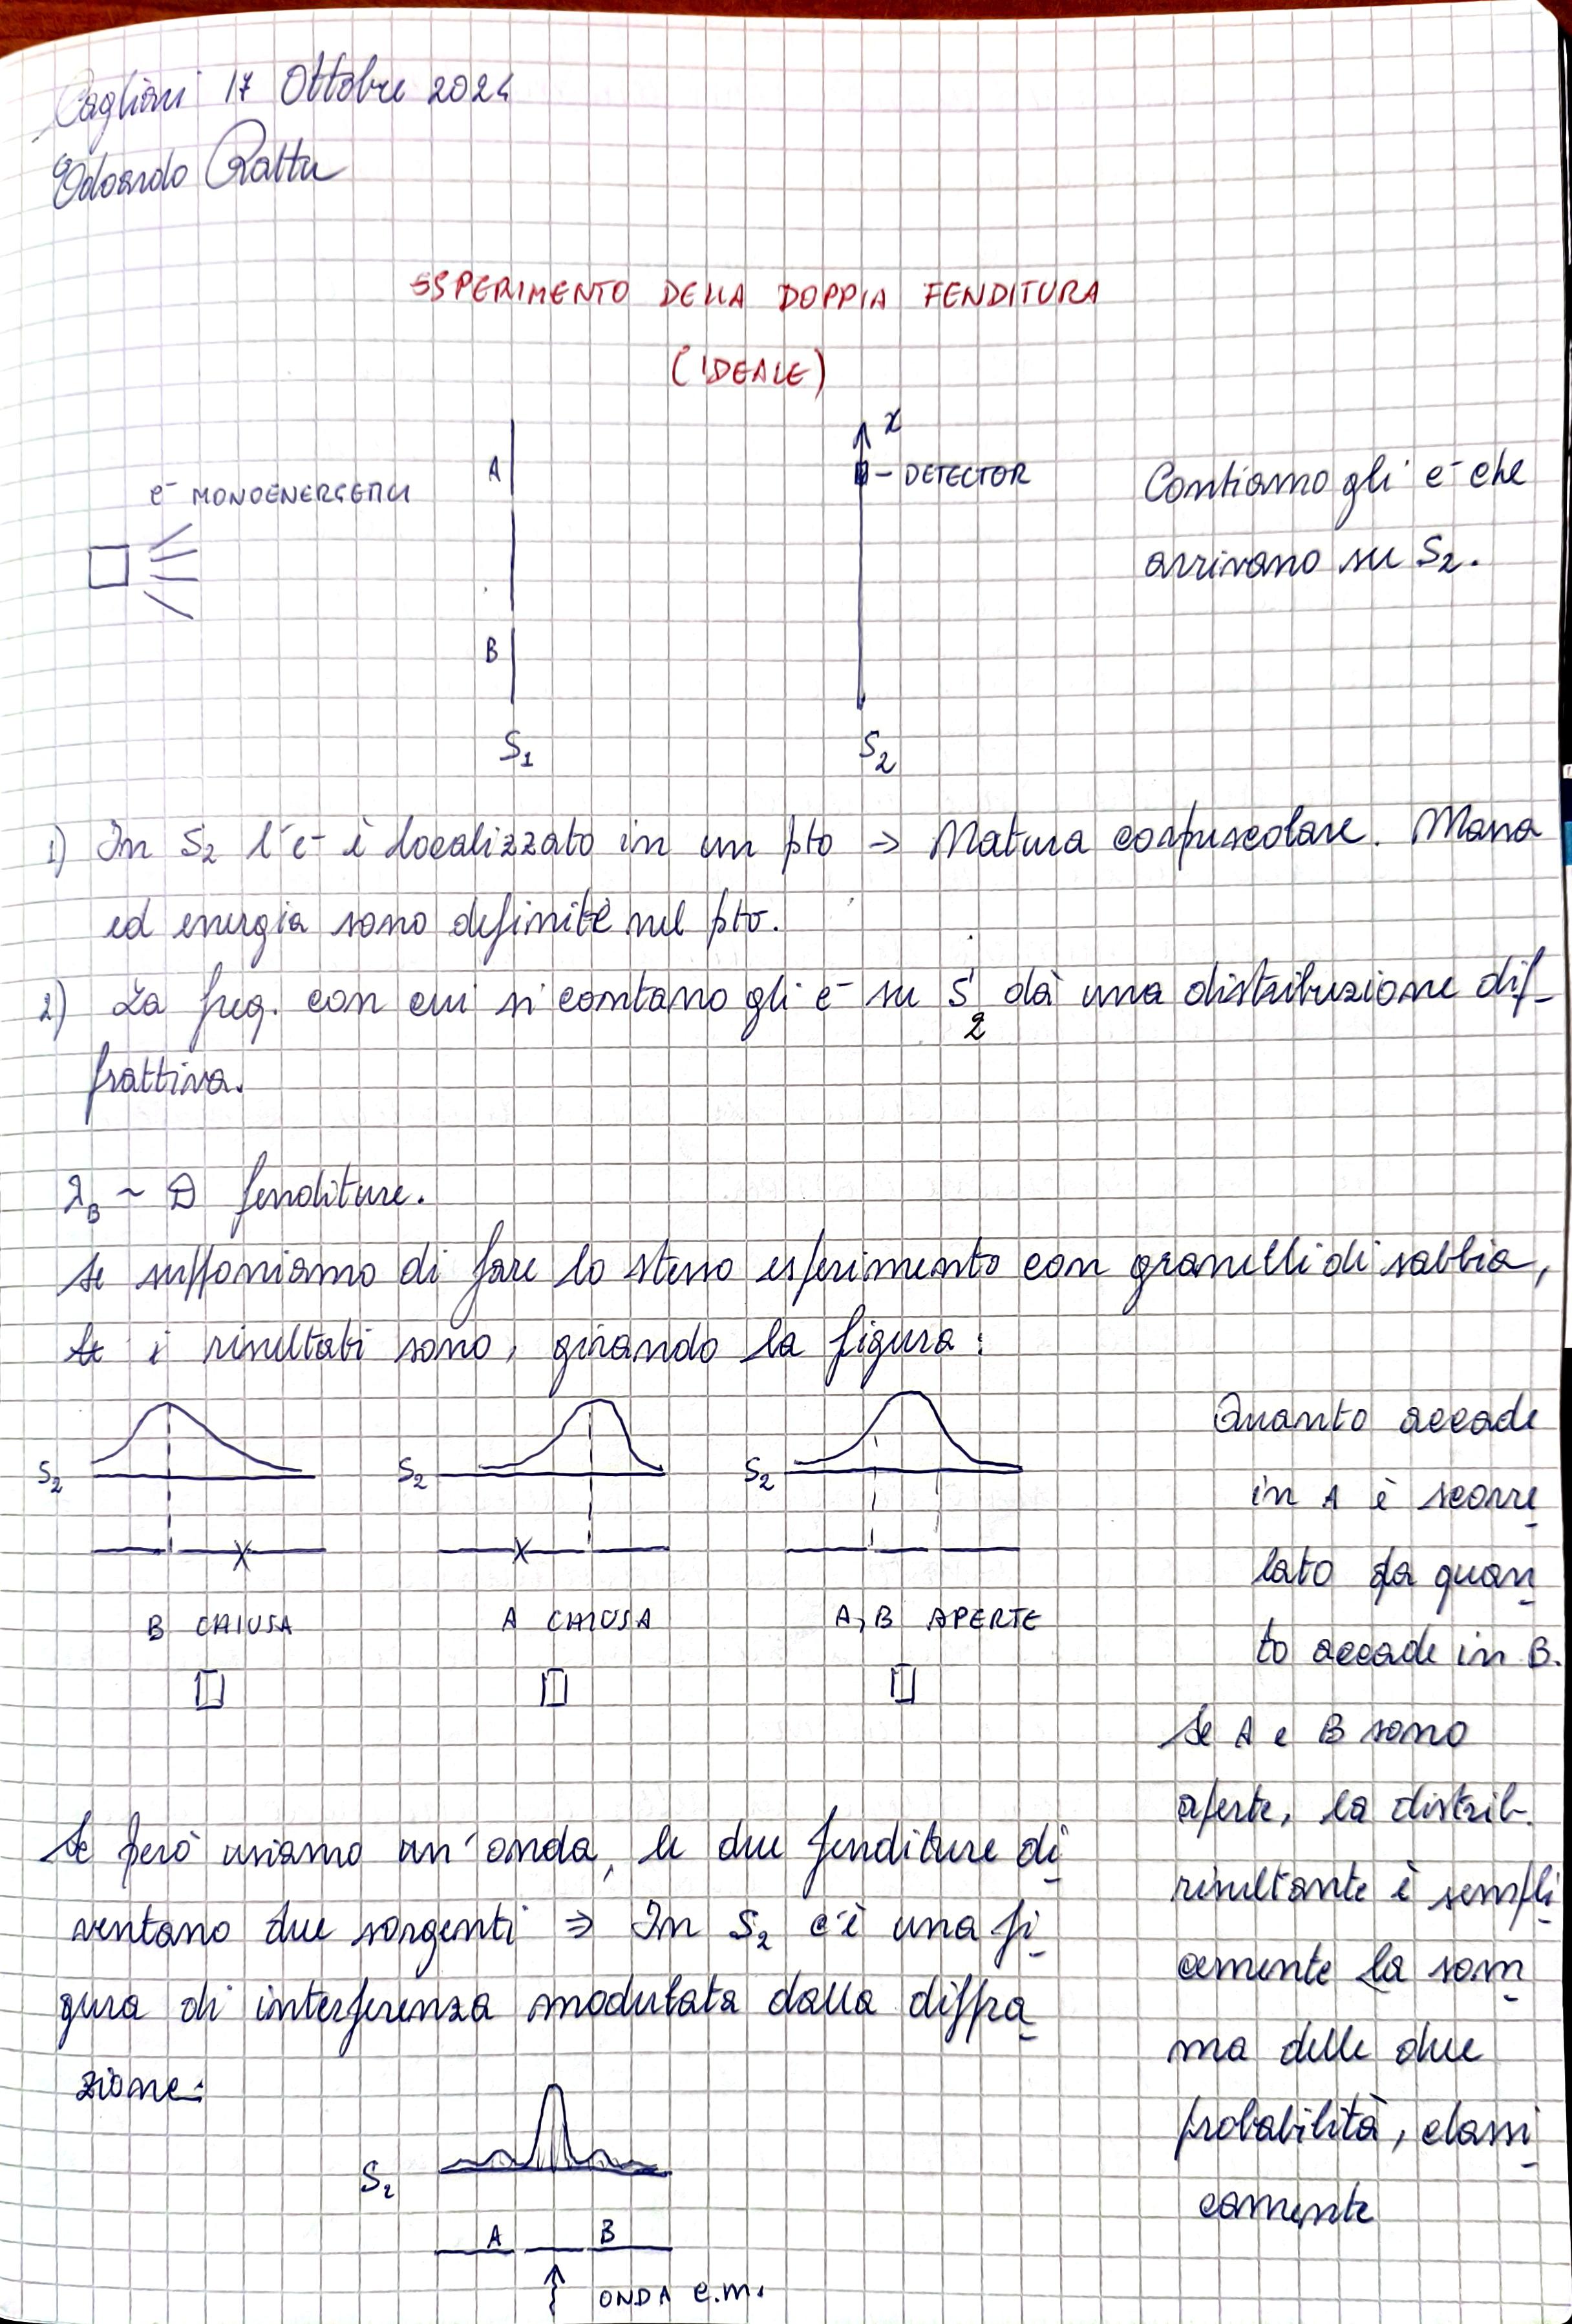 Cagliari 17 Ottobre 2024
Edoardo Rattu
ESPERIMENTO DELLA DOPPIA FENDITURA
(IDEALE)
x
A
- DETECTOR
e⁻ MONOENERGETICI
B
S₁
S₂
Contiamo gli e⁻ che
arrivano su S₂.
1) In S₂ l'e⁻ è localizzato in un pto → Natura corpuscolare. Massa
ed energia sono definite nel pto.
2) La freq. con cui si contano gli e⁻ su S₂ dà una distribuzione dif-
frattiva.
λ_B ~ D fenditure.
Se supponiamo di fare lo stesso esperimento con granelli di sabbia,
i risultati sono, girando la figura:
S₂
S₂
S₂
B CHIUSA
A CHIUSA
A, B APERTE
Quanto accade
in A è scorre_
lato da quan_
to accade in B.
Se A e B sono
aperte, la distrib.
risultante è sempli_
cemente la som_
ma delle due
probabilità, classi_
camente
Se però usiamo un'onda, le due fenditure di_
ventano due sorgenti ⇒ In S₂ c'è una fi_
gura di interferenza modulata dalla diffra_
zione:
S₂
A B
ONDA e.m.